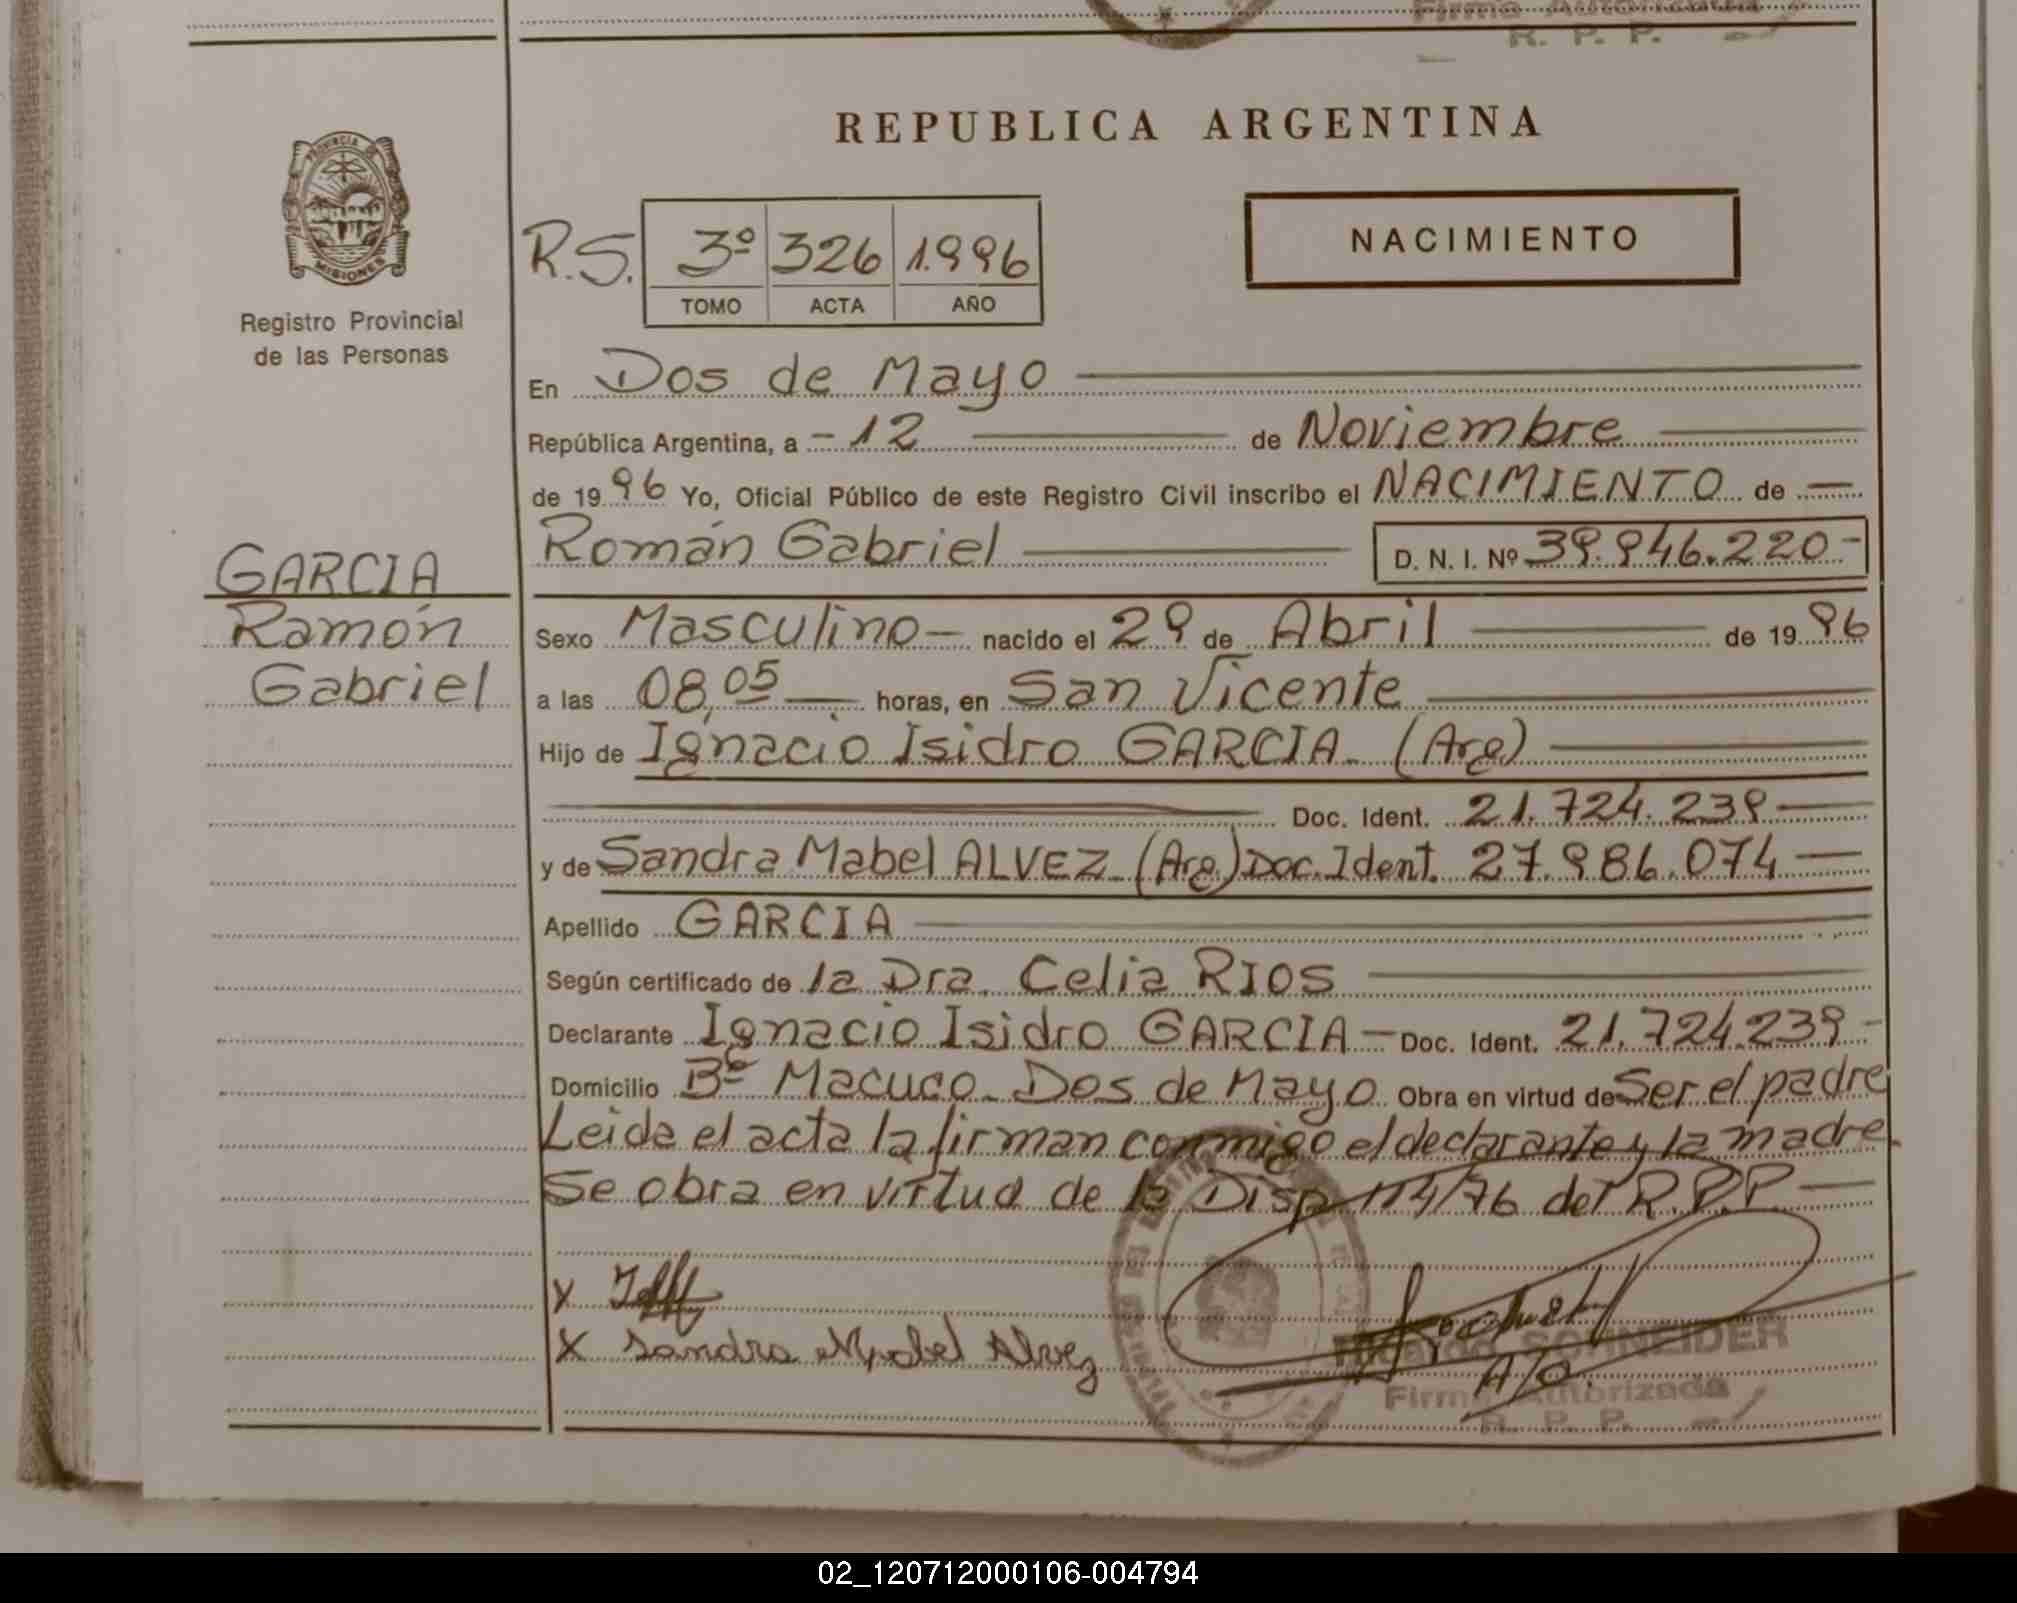 Firma Autorizada
R. P. P.
REPUBLICA ARGENTINA
PROVINCIA DE
MISIONES
Registro Provincial
de las Personas
NACIMIENTO
R.S. 3º 326 1.996
TOMO ACTA AÑO
En Dos de Mayo
República Argentina, a - 12 de Noviembre
de 1996 Yo, Oficial Público de este Registro Civil inscribo el NACIMIENTO de
Román Gabriel D. N. I. Nº 39.946.220.-
GARCIA
Ramón
Gabriel
Sexo Masculino nacido el 29 de Abril de 1996
a las 08,05 horas, en San Vicente
Hijo de Ignacio Isidro GARCIA (Arg)
Doc. Ident. 21.724.239
y de Sandra Mabel ALVEZ (Arg) Doc. Ident. 27.986.074
Apellido GARCIA
Según certificado de la Dra. Celia RIOS
Declarante Ignacio Isidro GARCIA - Doc. Ident. 21.724.239.-
Domicilio Bº Macuco - Dos de Mayo Obra en virtud de Ser el padre
Leida el acta la firman conmigo el declarante y la madre.
Se obra en virtud de la Disp 114/76 del R.P.P.
X
X Sandra Mabel Alvez
Ricardo SCHNEIDER
A/C.
Firma Autorizada
R. P. P.
02_120712000106-004794